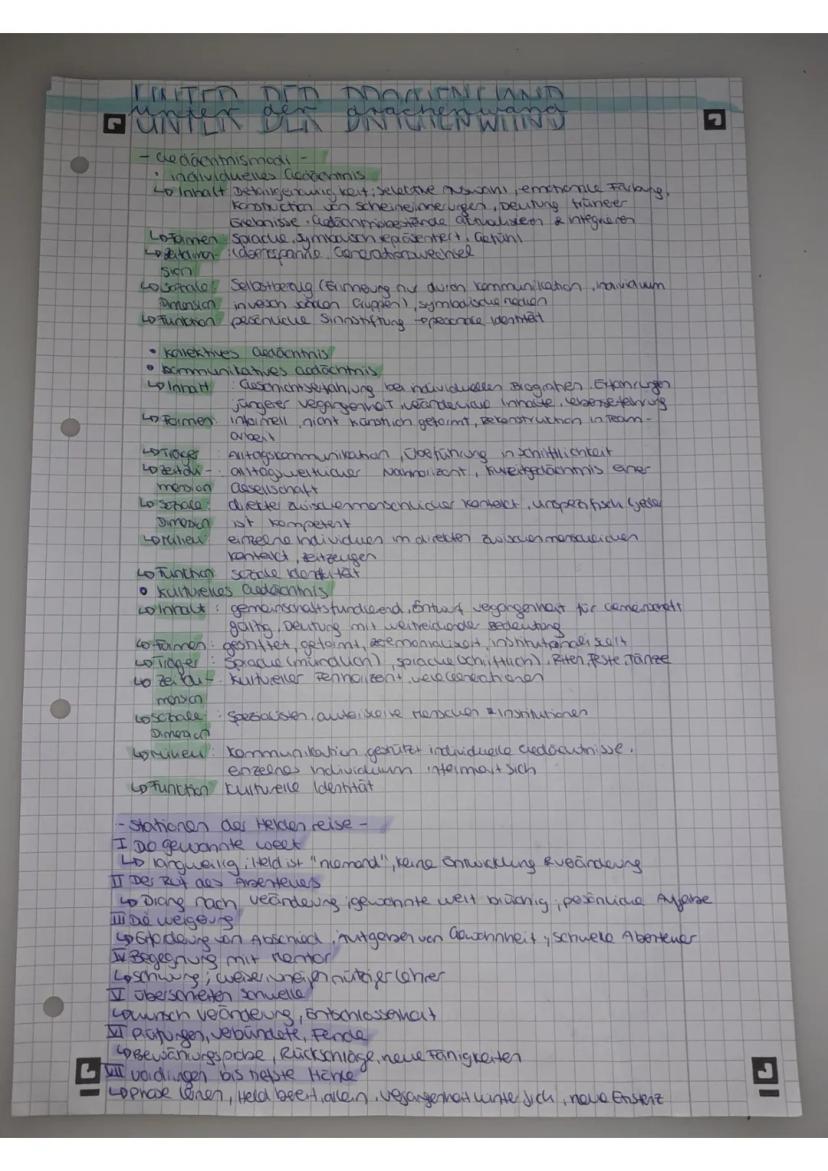 UNTER DER DRACHENWAND
- Gedächtnismodi -
• individuelles Gedächtnis
↳ Inhalt Detailgenauigkeit, selektive Auswahl, emotionale Färbung,
Konstruktion von Scheinerinnerungen, Deutung früherer
Erlebnisse, Gedächtnisbestände aktualisieren & integrieren
↳ Formen Sprache, symbolisch repräsentiert, Gefühl
↳ Zeitdimen- : Lebensspanne, Generationswechsel
sion
↳ soziale : Selbstbezug (Erinnerung nur durch Kommunikation, Individuum
Dimension in versch. sozialen Gruppen), symbolische Medien
↳ Funktion persönliche Sinnstiftung → personale Identität
• kollektives Gedächtnis
• kommunikatives Gedächtnis
↳ Inhalt : Geschichtserfahrung bei individuellen Biografien, Erfahrungen
jüngerer Vergangenheit, veränderliche Inhalte, Lebenserfahrung
↳ Formen : informell, nicht künstlich geformt, Rekonstruktion in Team-
arbeit
↳ Träger : Alltagskommunikation, Überführung in Schriftlichkeit
↳ Zeitdi- : alltagsweltlicher Nahhorizont, Kurzzeitgedächtnis einer
mension Gesellschaft
↳ soziale : direkter zwischenmenschlicher Kontakt, unspezifisch, jeder
Dimension ist kompetent
↳ Milieu einzelne Individuen im direkten zwischenmenschlichen
Kontakt, Zeitzeugen
↳ Function soziale Identität
• kulturelles Gedächtnis
↳ Inhalt : gemeinschaftsfundierend, Entwurf Vergangenheit für Gemeinschaft
gültig, Deutung mit weitreichender Bedeutung
↳ Formen : gestiftet, geformt, zeremonialisiert, institutionalisiert
↳ Träger : Sprache (mündlich), Sprache (schriftlich), Riten, Feste, Tänze
↳ Zeitdi- : kultureller Fernhorizont, viele Generationen
mension
↳ soziale : Spezialisten, Menschen & Institutionen
Dimension
↳ Milieu : Kommunikation gestützt individuelle Gedächtnisse,
einzelnes Individuum informiert sich
↳ Function kulturelle Identität
- Stationen der Heldenreise -
I Die gewohnte Welt
↳ langweilig, Held ist "niemand", keine Entwicklung & Veränderung
II Der Ruf des Abenteuers
↳ Drang nach Veränderung, gewohnte Welt brüchig, persönliche Aufgabe
III Die Weigerung
↳ Erforderung von Abschied, Aufgeben von Gewohnheit, Schwelle Abenteuer
IV Begegnung mit Mentor
↳ Schwung; weiser, uneigennütziger Lehrer
V Überschreiten Schwelle
↳ Wunsch Veränderung, Entschlossenheit
VI Prüfungen, Verbündete, Feinde
↳ Bewährungsprobe, Rückschläge, neue Fähigkeiten
VII Vordringen bis tiefste Höhle
↳ Phase Held allein, Vergangenheit hinter sich, neue Existenz